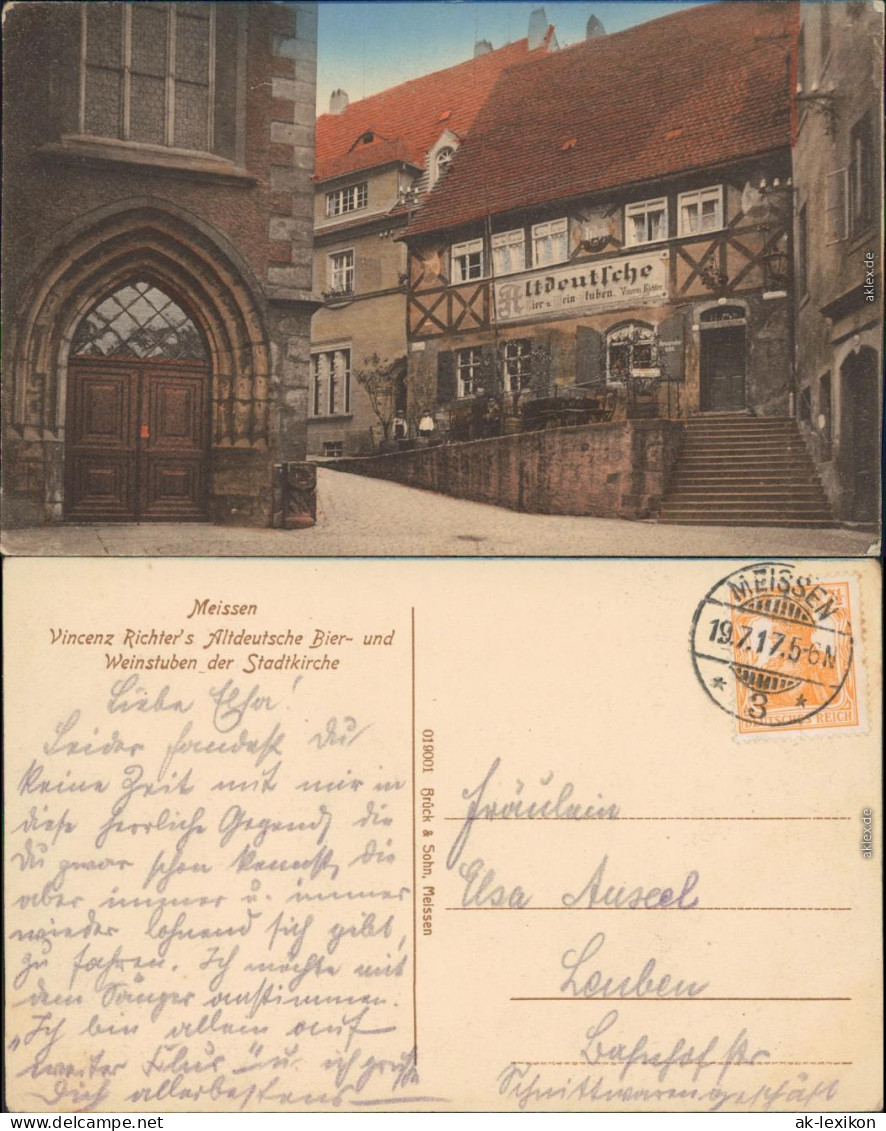 Altdeutsche
Bier u. Wein stuben. Vincenz Richter
Meissen
Vincenz Richter's Altdeutsche Bier- und
Weinstuben der Stadtkirche
Liebe Elsa!
Leider fandest Du
keine Zeit mit mir in
diese herrliche Gegend, die
Du zwar schon kennst, die
aber immer u. immer
wieder lohnend sich gibt,
zu fahren. Ich möchte mit
dem Sänger anstimmen.
"Ich bin allein auf
weiter Flur" u. ich grüße
Dich allerbestens
019001 Brück & Sohn, Meissen
MEISSEN
19.7.17.5-6N
* 3 *
DEUTSCHES REICH
Fräulein
Elsa
Leuben
Bahnhofstr
Schnittwarengeschäft
aklex.de
aklex.de
www.ak-lexikon.de
ak-lexikon